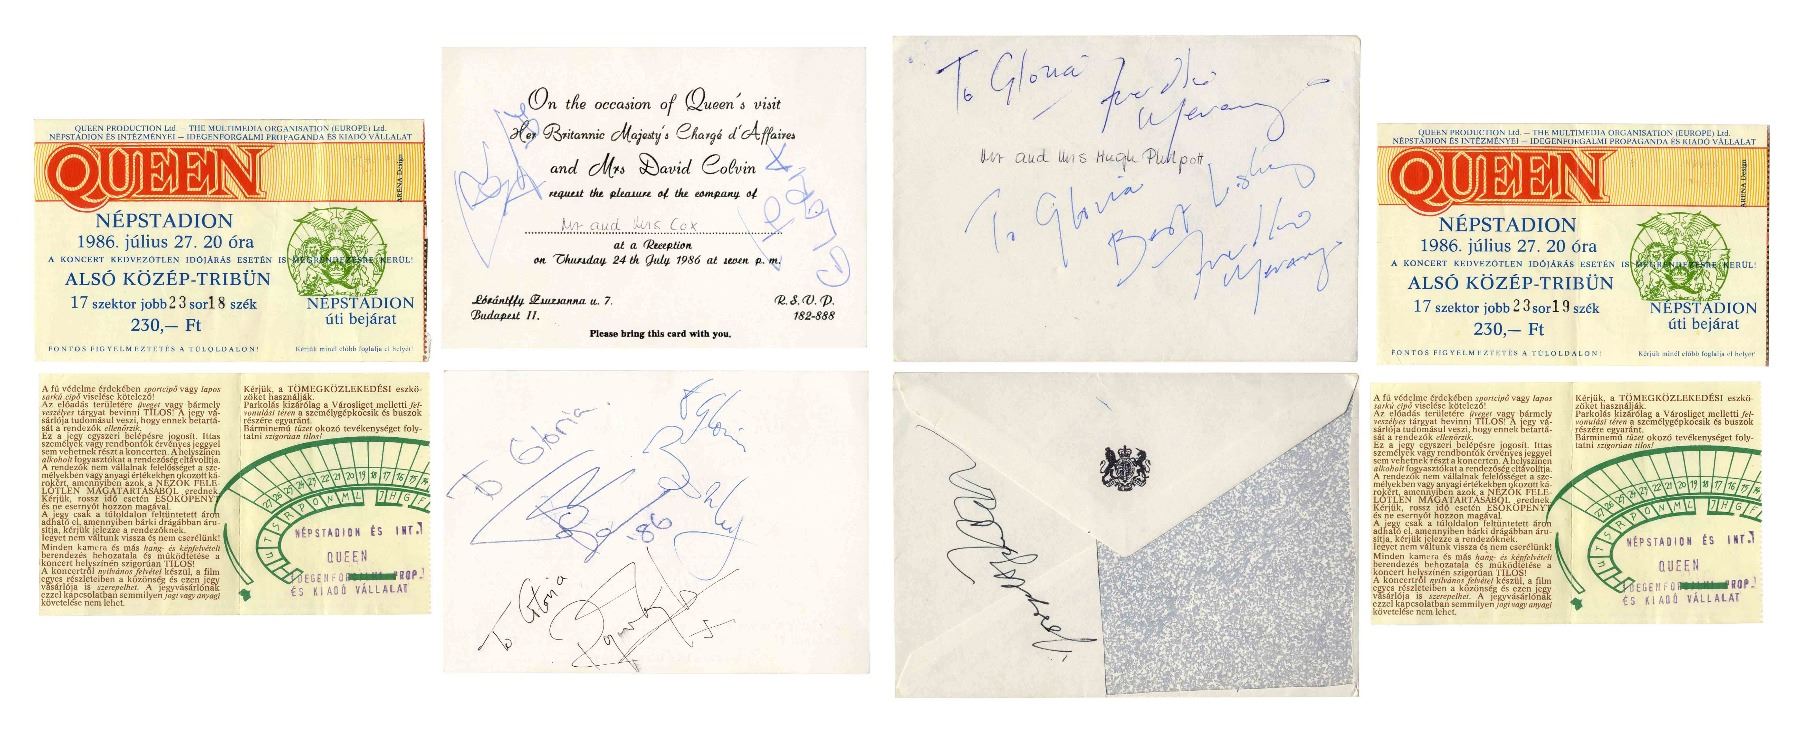 QUEEN PRODUCTION Ltd. — THE MULTIMEDIA ORGANISATION (EUROPE) Ltd.
NÉPSTADION ÉS INTÉZMÉNYEI — IDEGENFORGALMI PROPAGANDA ÉS KIADÓ VÁLLALAT
QUEEN
ARENA Design
NÉPSTADION
1986. július 27. 20 óra
A KONCERT KEDVEZŐTLEN IDŐJÁRÁS ESETÉN IS MEGRENDEZÉSRE KERÜL!
ALSÓ KÖZÉP-TRIBÜN
17 szektor jobb 23 sor 18 szék
230,— Ft
NÉPSTADION
úti bejárat
FONTOS FIGYELMEZTETÉS A TÚLOLDALON!
Kérjük minél előbb foglalja el helyét!
A fű védelme érdekében sportcipő vagy lapos
sarkú cipő viselése kötelező!
Az előadás területére üveget vagy bármely
veszélyes tárgyat bevinni TILOS! A jegy vá-
sárlója tudomásul veszi, hogy ennek betartá-
sát a rendezők ellenőrzik.
Ez a jegy egyszeri belépésre jogosít. Ittas
személyek vagy rendbontók érvényes jeggyel
sem vehetnek részt a koncerten. A helyszínen
alkoholt fogyasztókat a rendezőség eltávolítja.
A rendezők nem vállalnak felelősséget a sze-
mélyekben vagy anyagi értékekben okozott ká-
rokért, amennyiben azok a NÉZŐK FELE-
LŐTLEN MAGATARTÁSÁBÓL erednek.
Kérjük, rossz idő esetén ESŐKÖPENYT
és ne esernyőt hozzon magával.
A jegy csak a túloldalon feltüntetett áron
adható el, amennyiben bárki drágábban áru-
sítja, kérjük jelezze a rendezőknek.
Jegyet nem váltunk vissza és nem cserélünk!
Minden kamera és más hang- és képfelvételt
berendezés behozatala és működtetése a
koncert helyszínén szigorúan TILOS!
A koncertről nyilvános felvétel készül, a film
egyes részleteiben a közönség és ezen jegy
vásárlója is szerepelhet. A jegyvásárlónak
ezzel kapcsolatban semmilyen jogi vagy anyagi
követelése nem lehet.
Kérjük, a TÖMEGKÖZLEKEDÉSI eszkö-
zöket használják.
Parkolás kizárólag a Városliget melletti fel-
vonulási téren a személygépkocsik és buszok
részére egyaránt.
Bárminemű tüzet okozó tevékenységet foly-
tatni szigorúan tilos!
27 26 25 24 23 22 21 20 19 18 17 16 15 14
U T S R P O N M L J H G F
NÉPSTADION ÉS INT.
QUEEN
IDEGENFORGALMI PROP.
ÉS KIADÓ VÁLLALAT
On the occasion of Queen's visit
Her Britannic Majesty's Chargé d'Affaires
and Mrs David Colvin
request the pleasure of the company of
Mr and Mrs Cox
at a Reception
on Thursday 24th July 1986 at seven p. m.
Lórántffy Zsuzsanna u. 7.
Budapest II.
R. S. V. P.
182-888
Please bring this card with you.
To Gloria
'86
To Gloria
To Gloria
Freddie
Mercury
Mr and Mrs Hugh Philpott
To Gloria
Best Wishes
Freddie
Mercury
QUEEN PRODUCTION Ltd. — THE MULTIMEDIA ORGANISATION (EUROPE) Ltd.
NÉPSTADION ÉS INTÉZMÉNYEI — IDEGENFORGALMI PROPAGANDA ÉS KIADÓ VÁLLALAT
QUEEN
ARENA Design
NÉPSTADION
1986. július 27. 20 óra
A KONCERT KEDVEZŐTLEN IDŐJÁRÁS ESETÉN IS MEGRENDEZÉSRE KERÜL!
ALSÓ KÖZÉP-TRIBÜN
17 szektor jobb 23 sor 19 szék
230,— Ft
NÉPSTADION
úti bejárat
FONTOS FIGYELMEZTETÉS A TÚLOLDALON!
Kérjük minél előbb foglalja el helyét!
A fű védelme érdekében sportcipő vagy lapos
sarkú cipő viselése kötelező!
Az előadás területére üveget vagy bármely
veszélyes tárgyat bevinni TILOS! A jegy vá-
sárlója tudomásul veszi, hogy ennek betartá-
sát a rendezők ellenőrzik.
Ez a jegy egyszeri belépésre jogosít. Ittas
személyek vagy rendbontók érvényes jeggyel
sem vehetnek részt a koncerten. A helyszínen
alkoholt fogyasztókat a rendezőség eltávolítja.
A rendezők nem vállalnak felelősséget a sze-
mélyekben vagy anyagi értékekben okozott ká-
rokért, amennyiben azok a NÉZŐK FELE-
LŐTLEN MAGATARTÁSÁBÓL erednek.
Kérjük, rossz idő esetén ESŐKÖPENYT
és ne esernyőt hozzon magával.
A jegy csak a túloldalon feltüntetett áron
adható el, amennyiben bárki drágábban áru-
sítja, kérjük jelezze a rendezőknek.
Jegyet nem váltunk vissza és nem cserélünk!
Minden kamera és más hang- és képfelvételt
berendezés behozatala és működtetése a
koncert helyszínén szigorúan TILOS!
A koncertről nyilvános felvétel készül, a film
egyes részleteiben a közönség és ezen jegy
vásárlója is szerepelhet. A jegyvásárlónak
ezzel kapcsolatban semmilyen jogi vagy anyagi
követelése nem lehet.
Kérjük, a TÖMEGKÖZLEKEDÉSI eszkö-
zöket használják.
Parkolás kizárólag a Városliget melletti fel-
vonulási téren a személygépkocsik és buszok
részére egyaránt.
Bárminemű tüzet okozó tevékenységet foly-
tatni szigorúan tilos!
27 26 25 24 23 22 21 20 19 18 17 16 15 14
U T S R P O N M L J H G F
NÉPSTADION ÉS INT.
QUEEN
IDEGENFORGALMI PROP.
ÉS KIADÓ VÁLLALAT